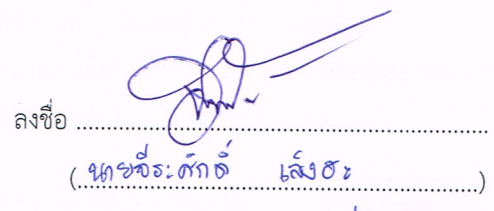 ลงชื่อ ........................................................
(นายจีระศักดิ์ เส้งฮะ)